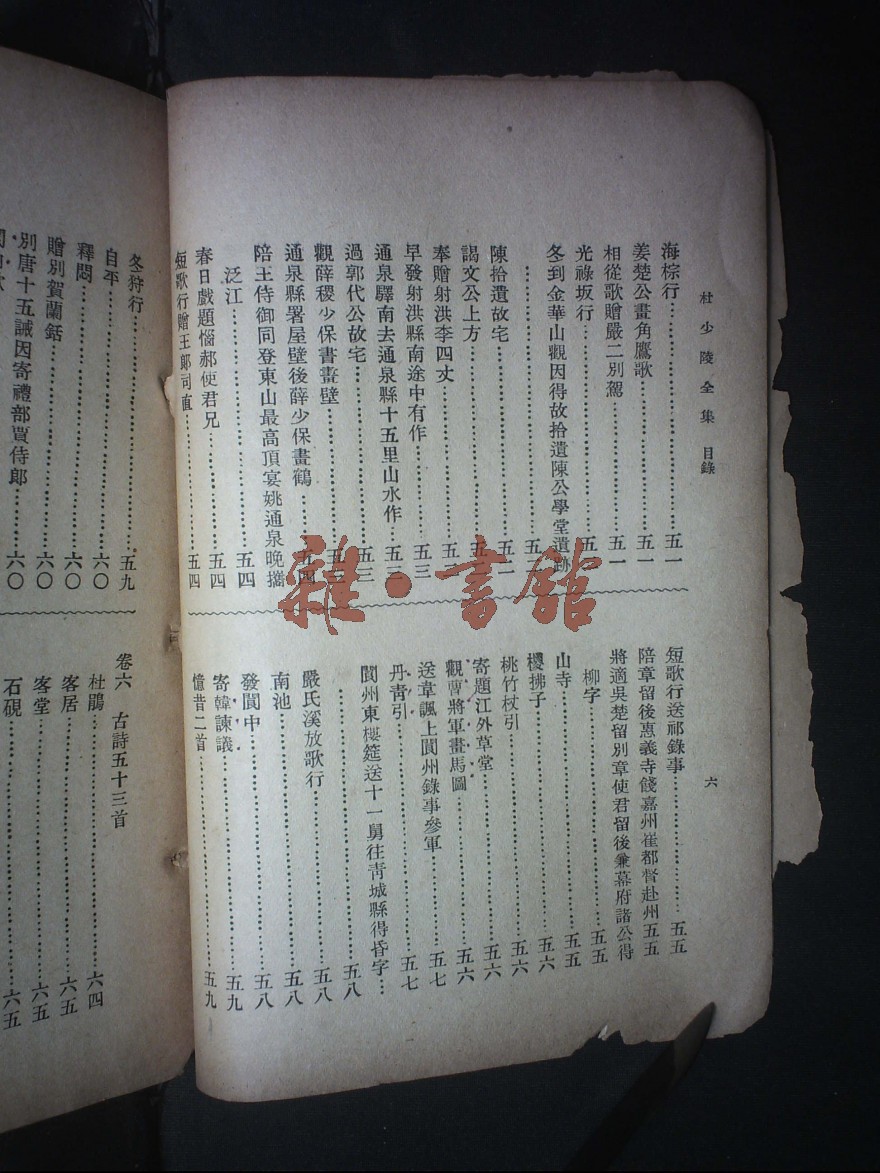 杜少陵全集 目錄
六
海棕行…………五一
姜楚公畫角鷹歌…………五一
相從歌贈嚴二別駕…………五一
光祿坂行…………五一
冬到金華山觀因得故拾遺陳公學堂遺跡
…………五二
陳拾遺故宅…………五二
謁文公上方…………五二
奉贈射洪李四丈…………五三
早發射洪縣南途中有作…………五三
通泉驛南去通泉縣十五里山水作…………五三
過郭代公故宅…………五三
觀薛稷少保書畫壁…………五三
通泉縣署屋壁後薛少保畫鶴…………五四
陪王侍御同登東山最高頂宴姚通泉晚攜
泛江…………五四
春日戲題惱郝使君兄…………五四
短歌行贈王郎司直…………五四
短歌行送祁錄事…………五五
陪章留後惠義寺餞嘉州崔都督赴州五五
將適吳楚留別章使君留後兼幕府諸公得
柳字…………五五
山寺…………五五
椶拂子…………五六
桃竹杖引…………五六
寄題江外草堂…………五六
觀曹將軍畫馬圖…………五六
送韋諷上閬州錄事參軍…………五七
丹青引…………五七
閬州東樓筵送十一舅往青城縣得昏字…
…………五八
嚴氏溪放歌行…………五八
南池…………五八
發閬中…………五八
寄韓諫議…………五九
憶昔二首…………五九
冬狩行…………五九
自平…………六〇
釋悶…………六〇
贈別賀蘭銛…………六〇
別唐十五誡因寄禮部賈侍郎…………六〇
卷六 古詩五十三首
杜鵑…………六四
客居…………六五
客堂…………六五
石硯…………六五
雜·書館